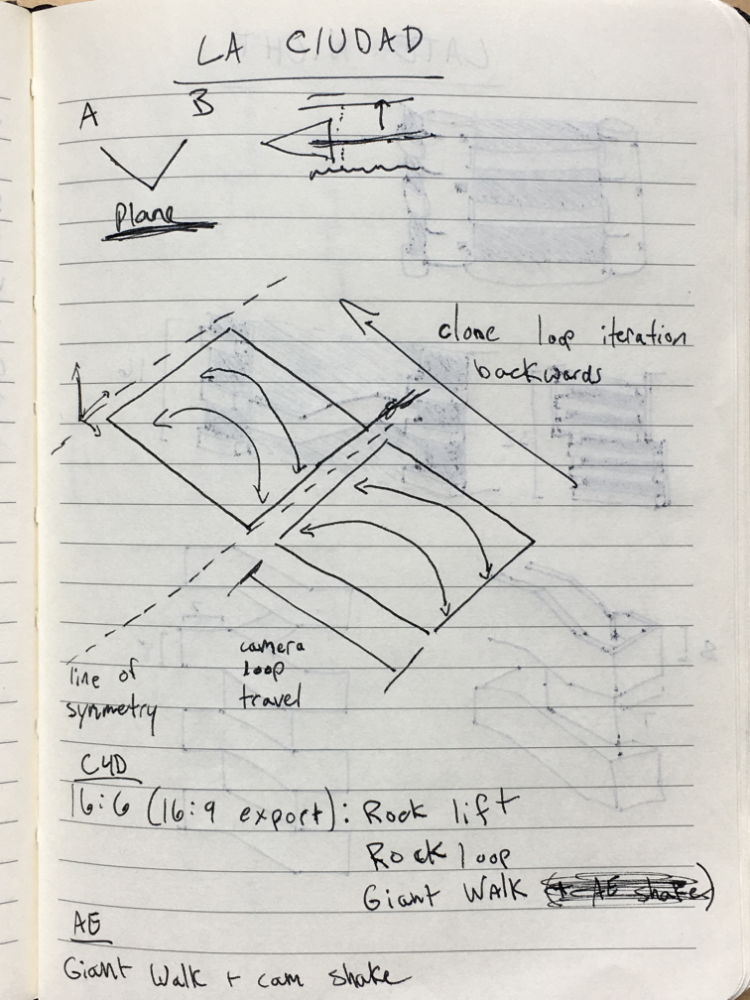 LA CIUDAD
A B
Plane
clone loop iteration
backwards
camera
loop
travel
line of
symmetry
C4D
16:6 (16:9 export): Rock lift
Rock loop
Giant WALK (+ AE shake)
AE
Giant Walk + cam shake